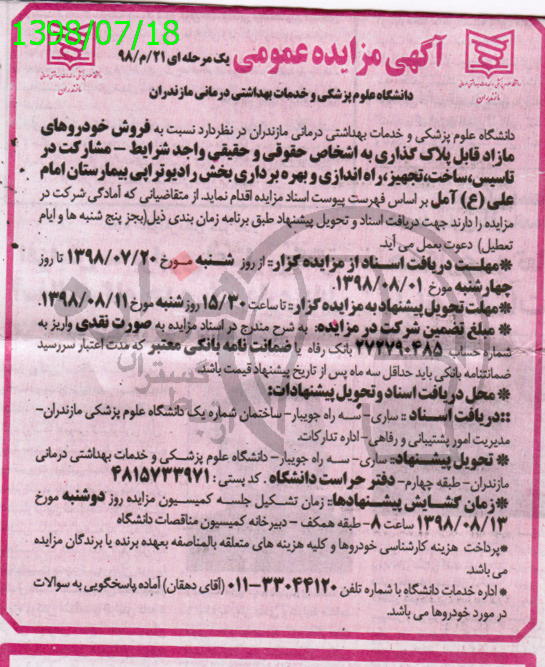 1398/07/18
آگهی مزایده عمومی یک مرحله ای ۲۱/م/۹۸
دانشگاه علوم پزشکی و خدمات بهداشتی درمانی مازندران
دانشگاه علوم پزشکی و خدمات بهداشتی درمانی مازندران در نظر دارد نسبت به فروش خودروهای
مازاد قابل پلاک گذاری به اشخاص حقوقی و حقیقی واجد شرایط – مشارکت در
تاسیس،ساخت،تجهیز،راه اندازی و بهره برداری بخش رادیوتراپی بیمارستان امام
علی (ع) آمل بر اساس فهرست پیوست اسناد مزایده اقدام نماید. از متقاضیانی که آمادگی شرکت در
مزایده را دارند جهت دریافت اسناد و تحویل پیشنهاد طبق برنامه زمان بندی ذیل(بجز پنج شنبه ها و ایام
تعطیل) دعوت بعمل می آید.
*مهلت دریافت اسناد از مزایده گزار:: از روز شنبه مورخ ۱۳۹۸/۰۷/۲۰ تا روز
چهارشنبه مورخ ۱۳۹۸/۰۸/۰۱.
*مهلت تحویل پیشنهاد به مزایده گزار:: تا ساعت ۱۵/۳۰ روز شنبه مورخ ۱۳۹۸/۰۸/۱۱.
* مبلغ تضمین شرکت در مزایده: به شرح مندرج در اسناد مزایده به صورت نقدی واریز به
شماره حساب ۲۷۲۷۹۰۴۸۵ بانک رفاه یا ضمانت نامه بانکی معتبر که مدت اعتبار سررسید
ضمانتنامه بانکی باید حداقل سه ماه پس از تاریخ پیشنهاد قیمت باشد.
* محل دریافت اسناد وتحویل پیشنهادات:
::دریافت اسناد :: ساری- سه راه جویبار- ساختمان شماره یک دانشگاه علوم پزشکی مازندران-
مدیریت امور پشتیبانی و رفاهی- اداره تدارکات.
* تحویل پیشنهاد:: ساری- سه راه جویبار- دانشگاه علوم پزشکی و خدمات بهداشتی درمانی
مازندران- طبقه چهارم- دفتر حراست دانشگاه . کد پستی : ۴۸۱۵۷۳۳۹۷۱
*زمان گشایش پیشنهادها:: زمان تشکیل جلسه کمیسیون مزایده روز دوشنبه مورخ
۱۳۹۸/۰۸/۱۳ ساعت ۸- طبقه همکف - دبیرخانه کمیسیون مناقصات دانشگاه
*پرداخت هزینه کارشناسی خودروها و کلیه هزینه های متعلقه بالمناصفه بعهده برنده یا برندگان مزایده
می باشد.
* اداره خدمات دانشگاه با شماره تلفن ۳۳۰۴۴۱۲۰-۰۱۱ (آقای دهقان) آماده پاسخگویی به سوالات
در مورد خودروها می باشد.